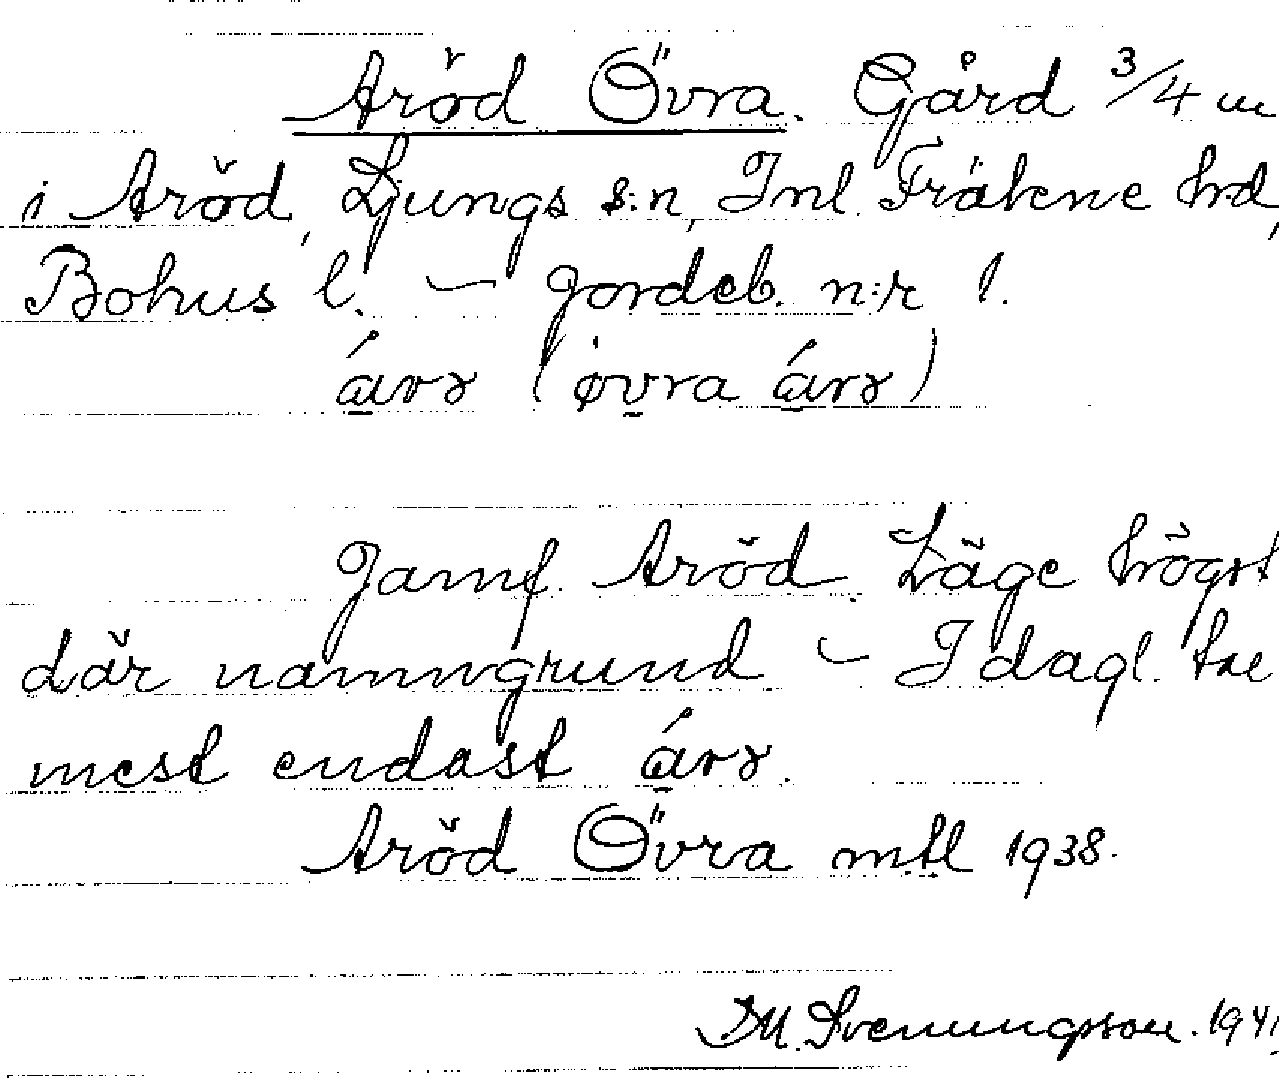 Aröd Övra. Gård 3/4 m
i Aröd, Ljungs s:n, Inl. Fräkne hd,
Bohus l. — Jordeb. n:r 1.
árɤ (øvra árɤ)
Jämf. Aröd. Läge högst
där namngrund — I dagl.
mest endast árɤ.
Aröd Övra mtl 1938.
DM. Svenungsson. 1941